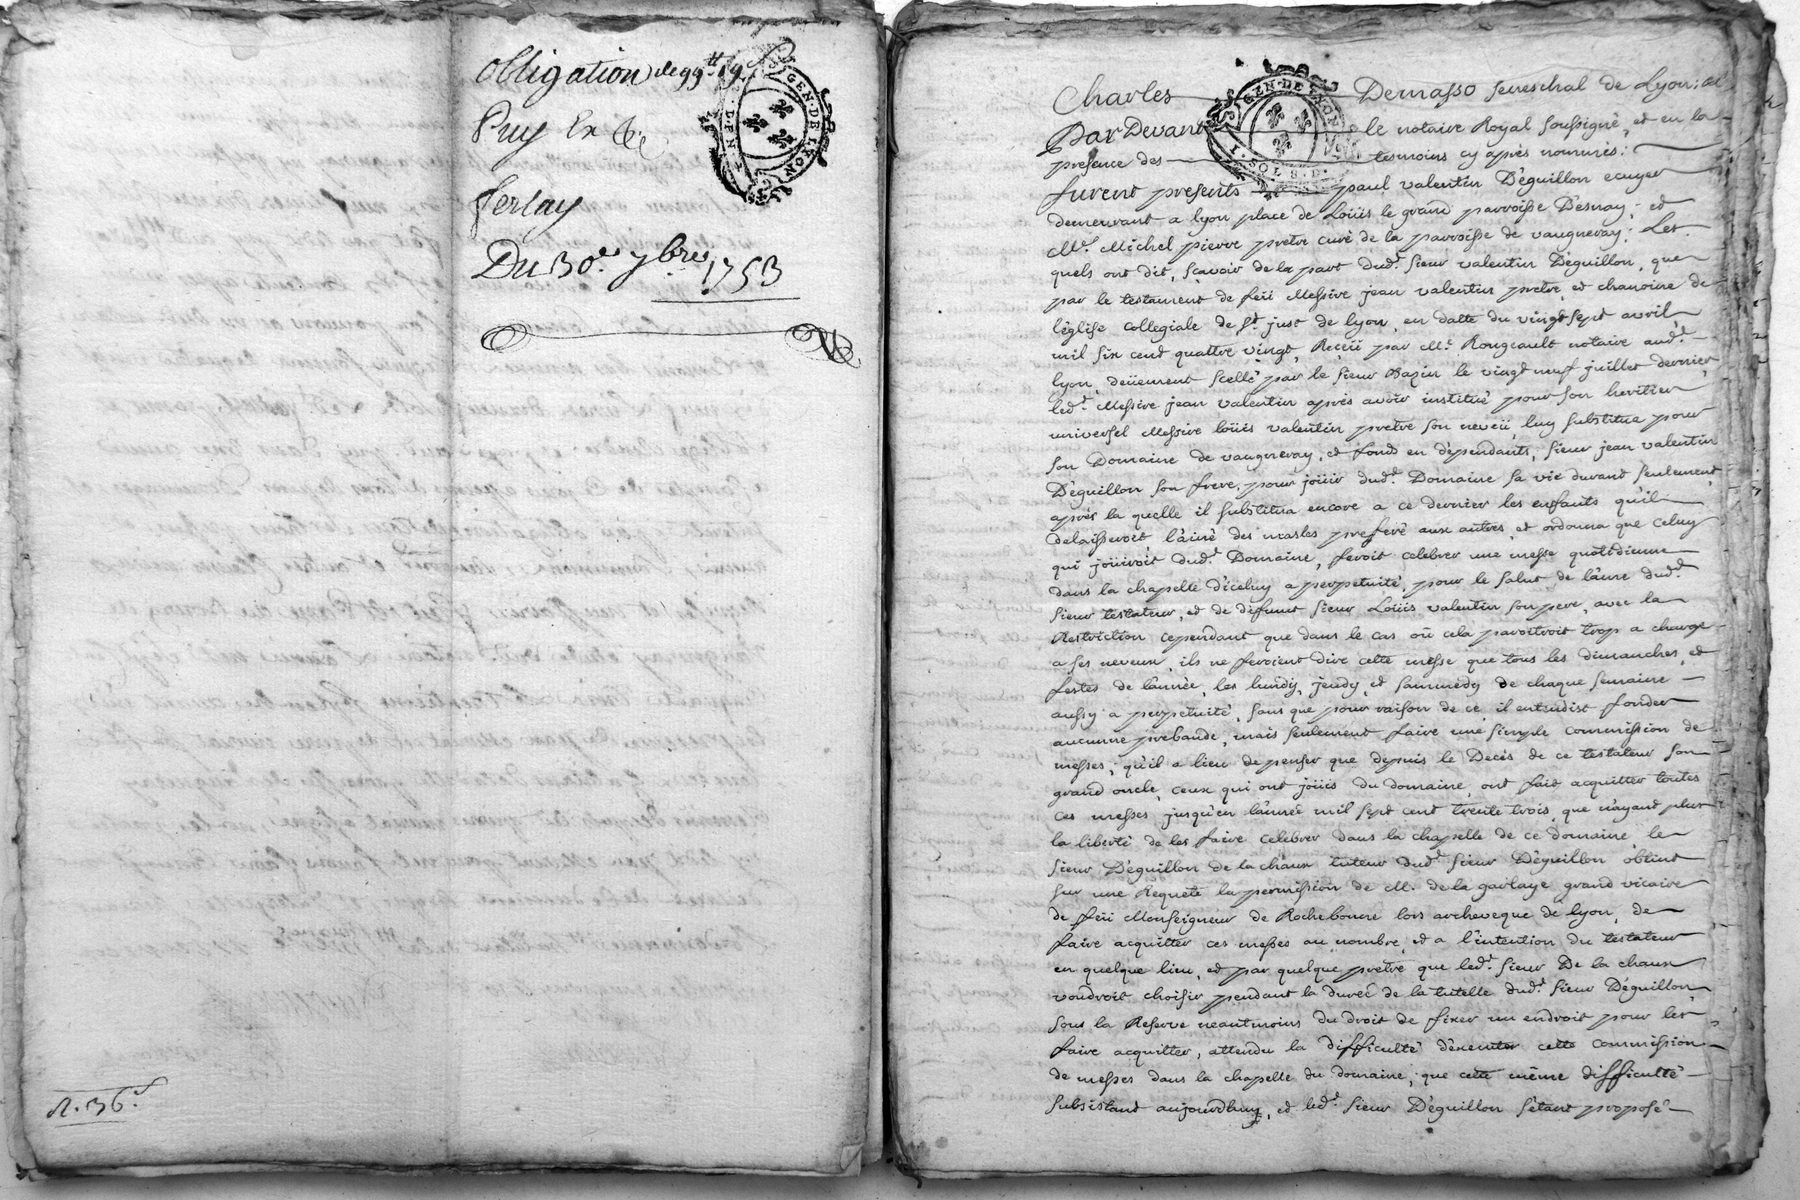 Obligation de 99tt 19s
Puy
ferlay
Du 30e 7bre 1753
GEN·DE LYON
Charles Demasso seneschal de Lyon
GEN·DE LYON
I·SOL 8·D·
Par Devant le notaire Royal soussigné, et en la
presence des tesmoins cy après nommés:
furent presents paul valentin Déguillon ecuyer
demeurant a lyon place de Loüis le grand parroisse Desnay; et
Mre Michel pierre pretre curé de la parroisse de vaugneray; Les
quels ont dit, sçavoir de la part dudt sieur valentin Déguillon, que
par le testament de feü Messire jean valentin pretre, et chanoine de
léglise collegiale de St just de lyon, en datte du vingt sept avril
mil six cent quattre vingt, Reçeü par Me Rougeault notaire audt
lyon, deüement scellé par le sieur Bazin le vingt neuf juillet dernier
ledt Messire jean valentin aprés avoir institué pour son heritier
universel Messire loüis valentin pretre son neveü, luy substitua pour
son Domaine de vaugneray, et fonds en dépendants, sieur jean valentin
Déguillon son frere, pour joüir dudt Domaine sa vie durant seulement,
aprés la quelle il substitua encore a ce dernier les enfants qu'il
delaisseroit l'ainé des masles preferé aux autres, et ordonna que celuy
qui joüiroit dudt Domaine, feroit celebrer une messe quottidienne
dans la chapelle d'iceluy a perpetuité, pour le salut de l'ame dudt
sieur testateur, et de défunt sieur Loüis valentin son pere, avec la
Restriction cependant que dans le cas où cela paroitroit trop a charge
a ses neveux, ils ne feroient dire cette messe que tous les dimanches, et
festes de l'année, les lundy, jeudy, et sammedy de chaque semaine
aussy a perpetuité, sans que pour raison de ce il entendist fonder
aucunne prebande, mais seulement faire une simple commission de
messes; qu'il a lieu de penser que depuis le Decés de ce testateur son
grand oncle, ceux qui ont joüis du domaine, ont fait acquitter toutes
ces messes jusqu'en l'année mil sept cent trente trois, que n'ayant plus
la liberté de les faire celebrer dans la chapelle de ce domaine, le
sieur Déguillon de la chaux tuteur dudt sieur Déguillon obtint
sur une Requete la permission de M. de la garlaye grand vicaire
de feü Monseigneur de Rochebonne lors archeveque de lyon, de
faire acquitter ces messes au nombre, et a l'intention du testateur
en quelque lieu, et par quelque pretre que ledt sieur De la chaux
voudroit choisir pendant la durée de la tutelle dudt sieur Déguillon,
sous la Reserve neantmoins du droit de fixer un endroit pour les
faire acquitter, attendu la difficulté déxecuter cette commission
de messes dans la chapelle du domaine; que cette même difficulté
subsistant aujourdhuy, et ledt sieur Déguillon s'étant proposé